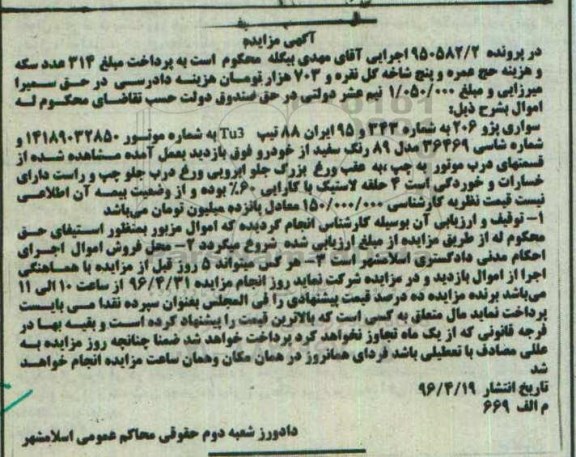 آگهی مزایده
در پرونده ۹۵۰۵۸۲/۲ اجرایی آقای مهدی بیگله محکوم است به پرداخت مبلغ ۳۱۴ عدد سکه
و هزینه حج عمره و پنج شاخه گل نقره و ۷۰۳ هزار تومان هزینه دادرسی در حق سمیرا
میرزایی و مبلغ ۱/۰۵۰/۰۰۰ نیم عشر دولتی در حق صندوق دولت حسب تقاضای محکوم له
اموال بشرح ذیل:
سواری پژو ۲۰۶ به شماره ۳۴۳ و ۹۵ ایران ۸۸ تیپ Tu3 به شماره موتور ۱۴۱۸۹۰۳۲۸۵۰ و
شماره شاسی ۳۶۴۶۹ مدل ۸۹ رنگ سفید از خودرو فوق بازدید بعمل آمده مشاهده شده از
قسمتهای درب موتور به چپ به عقب ورغ بزرگ جلو ابرویی ورغ درب جلو چپ و راست دارای
خسارات و خوردگی است ۴ حلقه لاستیک با کارایی ۶۰٪ بوده و از وضعیت بیمه آن اطلاعی
نیست قیمت نظریه کارشناسی ۱۵۰/۰۰۰/۰۰۰ معادل پانزده میلیون تومان می‌باشد
۱- توقیف و ارزیابی آن بوسیله کارشناس انجام گردیده که اموال مزبور بمنظور استیفای حق
محکوم له از طریق مزایده از مبلغ ارزیابی شده شروع میگردد ۲- محل فروش اموال اجرای
احکام مدنی دادگستری اسلامشهر است ۳- هر کس میتواند ۵ روز قبل از مزایده با هماهنگی
اجرا از اموال بازدید و در مزایده شرکت نماید روز انجام مزایده ۹۶/۴/۳۱ از ساعت ۱۰ الی ۱۱
می‌باشد برنده مزایده ده درصد قیمت پیشنهادی را فی المجلس بعنوان سپرده نقدا می بایست
پرداخت نماید مال متعلق به کسی است که بالاترین قیمت را پیشنهاد کرده است و بقیه بها در
فرجه قانونی که از یک ماه تجاوز نخواهد کرد پرداخت خواهد شد ضمنا چنانچه روز مزایده به
عللی مصادف با تعطیلی باشد فردای همانروز در همان مکان وهمان ساعت مزایده انجام خواهد
شد
تاریخ انتشار ۹۶/۴/۱۹
م الف ۶۶۹
دادورز شعبه دوم حقوقی محاکم عمومی اسلامشهر